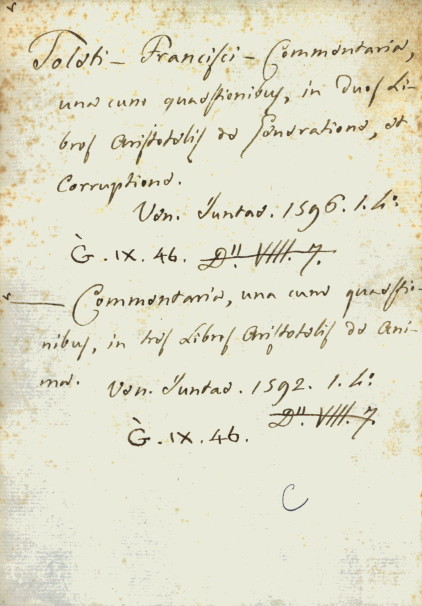 Toleti - Francisci - Commentaria,
una cum quaestionibus, in duos Li-
bros Aristotelis de Generatione, et
Corruptione.
Ven. Juntas. 1596. 1. 4.°
G. IX. 46. D.II VIII. 7.
— Commentaria, una cum quaestio-
nibus, in tres Libros Aristotelis de Ani-
ma. Ven. Juntas. 1592. 1. 4.°
D.II VIII. 7.
G. IX. 46.
C